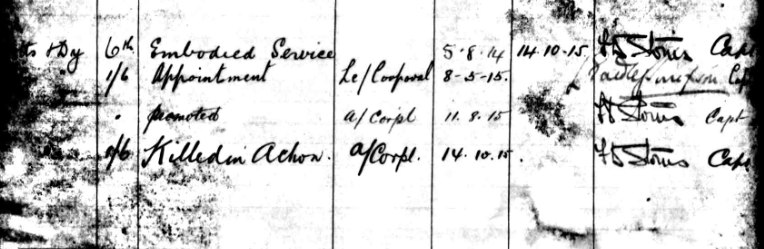 & Dy 6th Embodied Service 5.8.14 14.10.15 Capt
1/6 Appointment Le/Corporal 8-5-15.
" promoted a/Corpl 11.8.15 Capt
1/6 Killed in Action. a/Corpl. 14.10.15. Capt